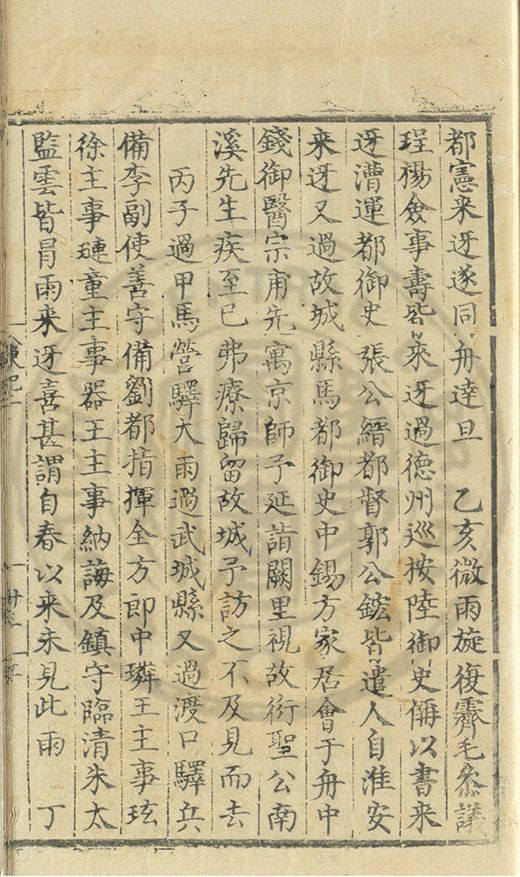 都憲来迓遂同舟達旦　乙亥微雨旋復霽毛叅議
珵楊僉事壽皆来迓過德州巡按陸御史偁以書来
迓漕運都御史張公縉都督郭公鋐皆遣人自淮安
来迓又過故城縣馬都御史中錫方家居會于舟中
錢御醫宗甫先寓京師予延詣闕里視故衍聖公南
溪先生疾至已弗療歸留故城予訪之不及見而去
丙子過甲馬營驛大雨過武城縣又過渡口驛兵
備李副使善守備劉都指揮全方郎中璘王主事玹
徐主事璉童主事器王主事納誨及鎮守臨清朱太
監雲皆冒雨来迓喜甚謂自春以来未見此雨　丁